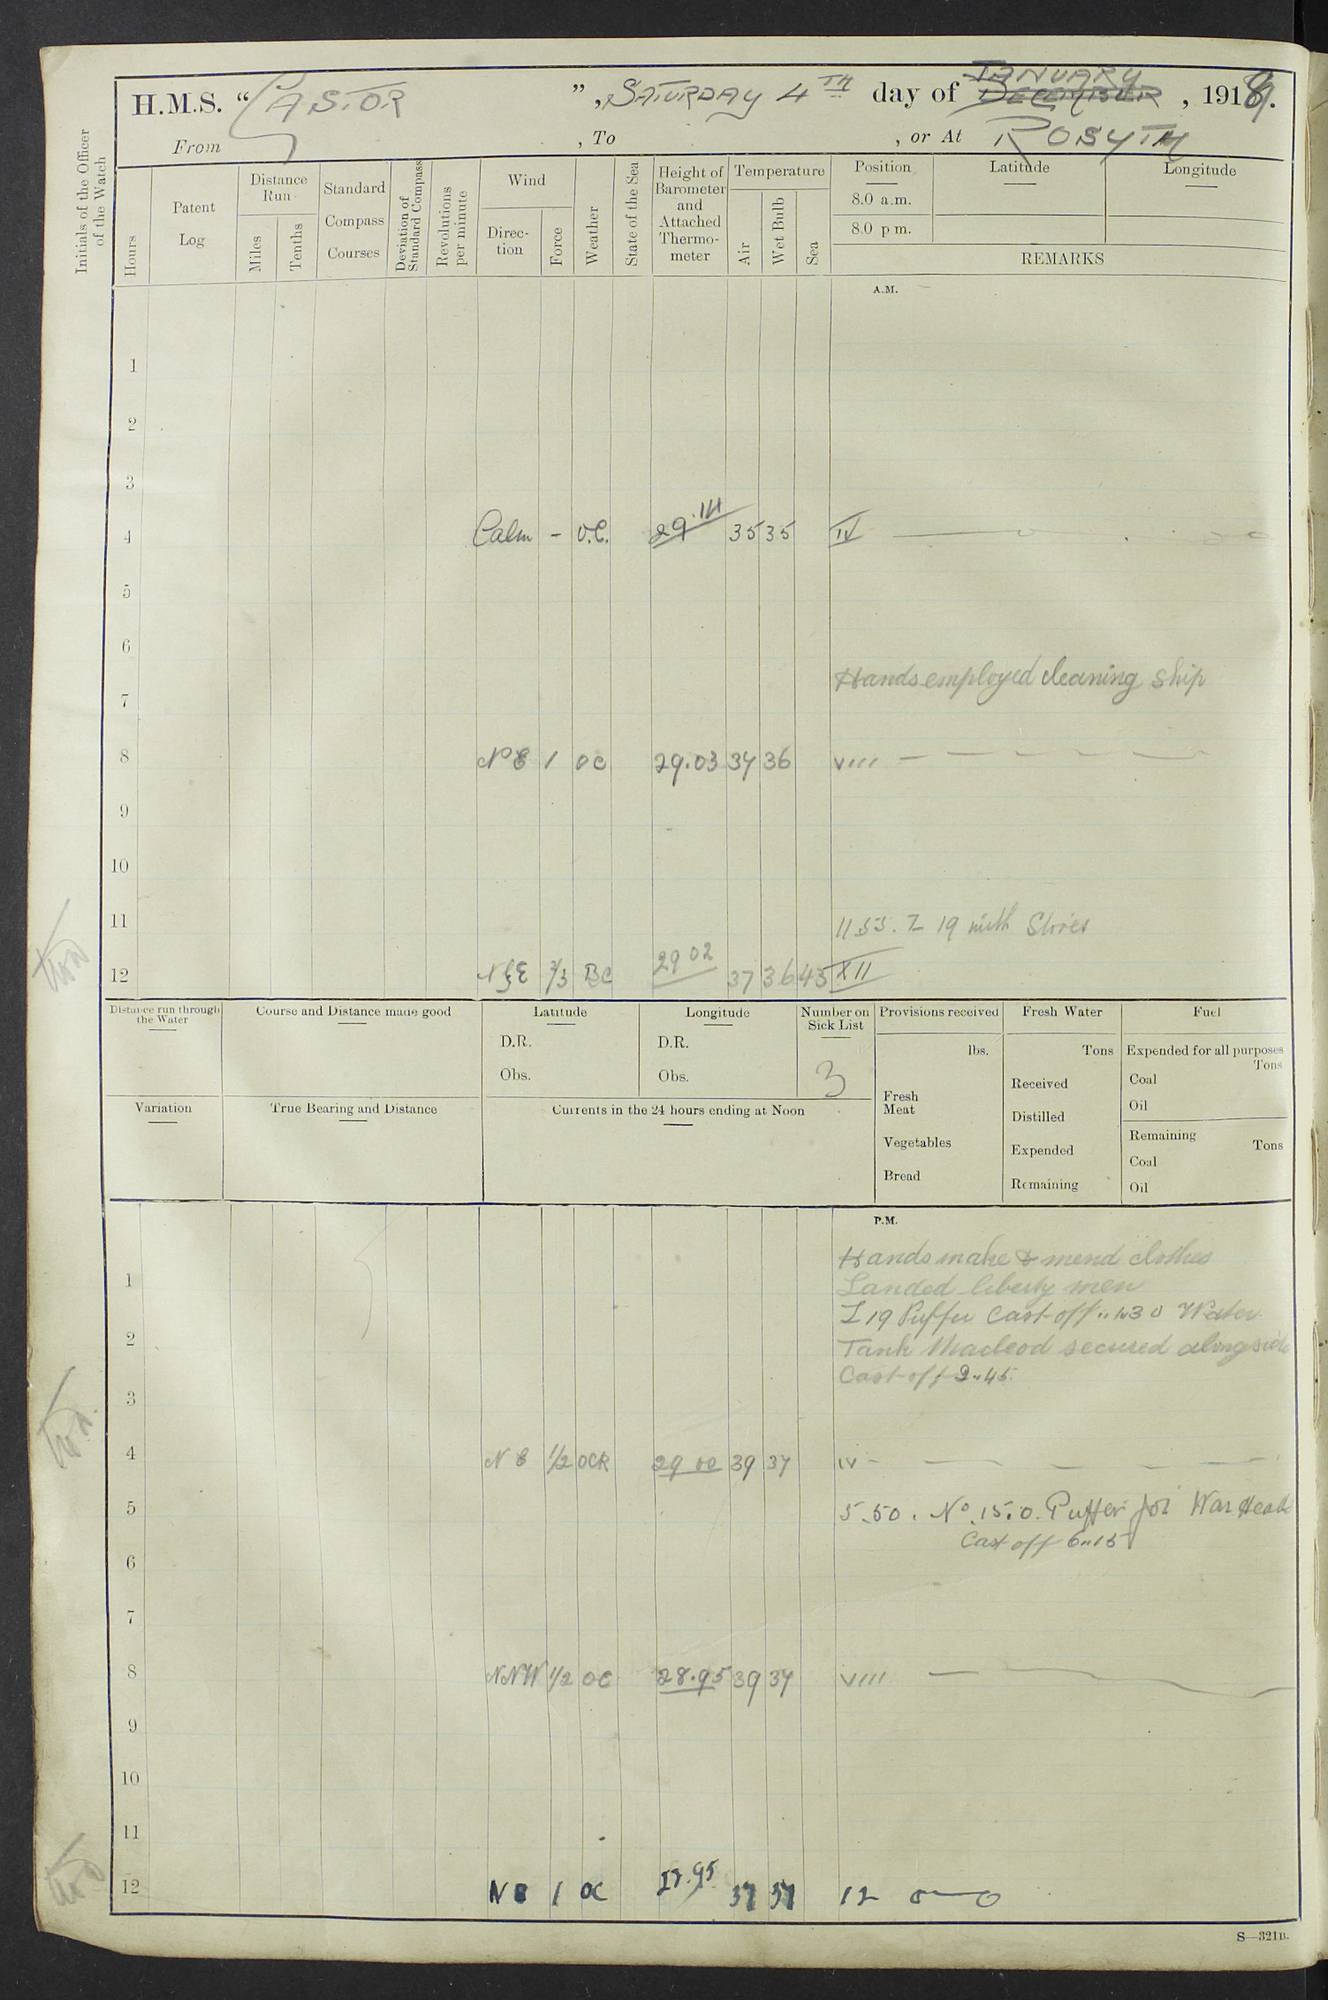 H.M.S. “CASTOR”, SATURDAY 4TH day of JANUARY DECEMBER, 1919.
From , To , or At ROSYTH
Initials of the Officer of the Watch
Hours
Patent Log
Distance Run
Miles
Tenths
Standard Compass Courses
Deviation of Standard Compass
Revolutions per minute
Wind
Direction
Force
Weather
State of the Sea
Height of Barometer and Attached Thermometer
Temperature
Air
Wet Bulb
Sea
Position Latitude Longitude
8.0 a.m.
8.0 p m.
REMARKS
A.M.
1
2
3
4 Calm – O.C. 35 35 IV
5
6
Hands employed cleaning ship
7
8 NE 1 OC 29.03 34 36 VIII
9
10
11 11.55. Z 19 with Stores
12 BC 29 02 37 36 45 XII
Distance run through the Water
Course and Distance made good
Latitude
D.R.
Obs.
Longitude
D.R.
Obs.
Number on Sick List
3
Provisions received
lbs.
Fresh Meat
Vegetables
Bread
Fresh Water
Tons
Received
Distilled
Expended
Remaining
Fuel
Expended for all purposes
Tons
Coal
Oil
Remaining
Tons
Coal
Oil
Variation
True Bearing and Distance
Currents in the 24 hours ending at Noon
P.M.
Hands make & mend clothes
1 Landed liberty men
Z 19 Puffer Cast off 1430 Water
2 Tank Macleod secured alongside
Cast off 2.45.
3
4 NE 1/2 OCR 29 00 39 37 IV
5 5.50. No. 15.0. Puffer for War Heads
Cast off 6.15
6
7
8 NNW 1/2 OC 28.95 39 37 VIII
9
10
11
12 NE 1 OC 37 37 12
S—321B.